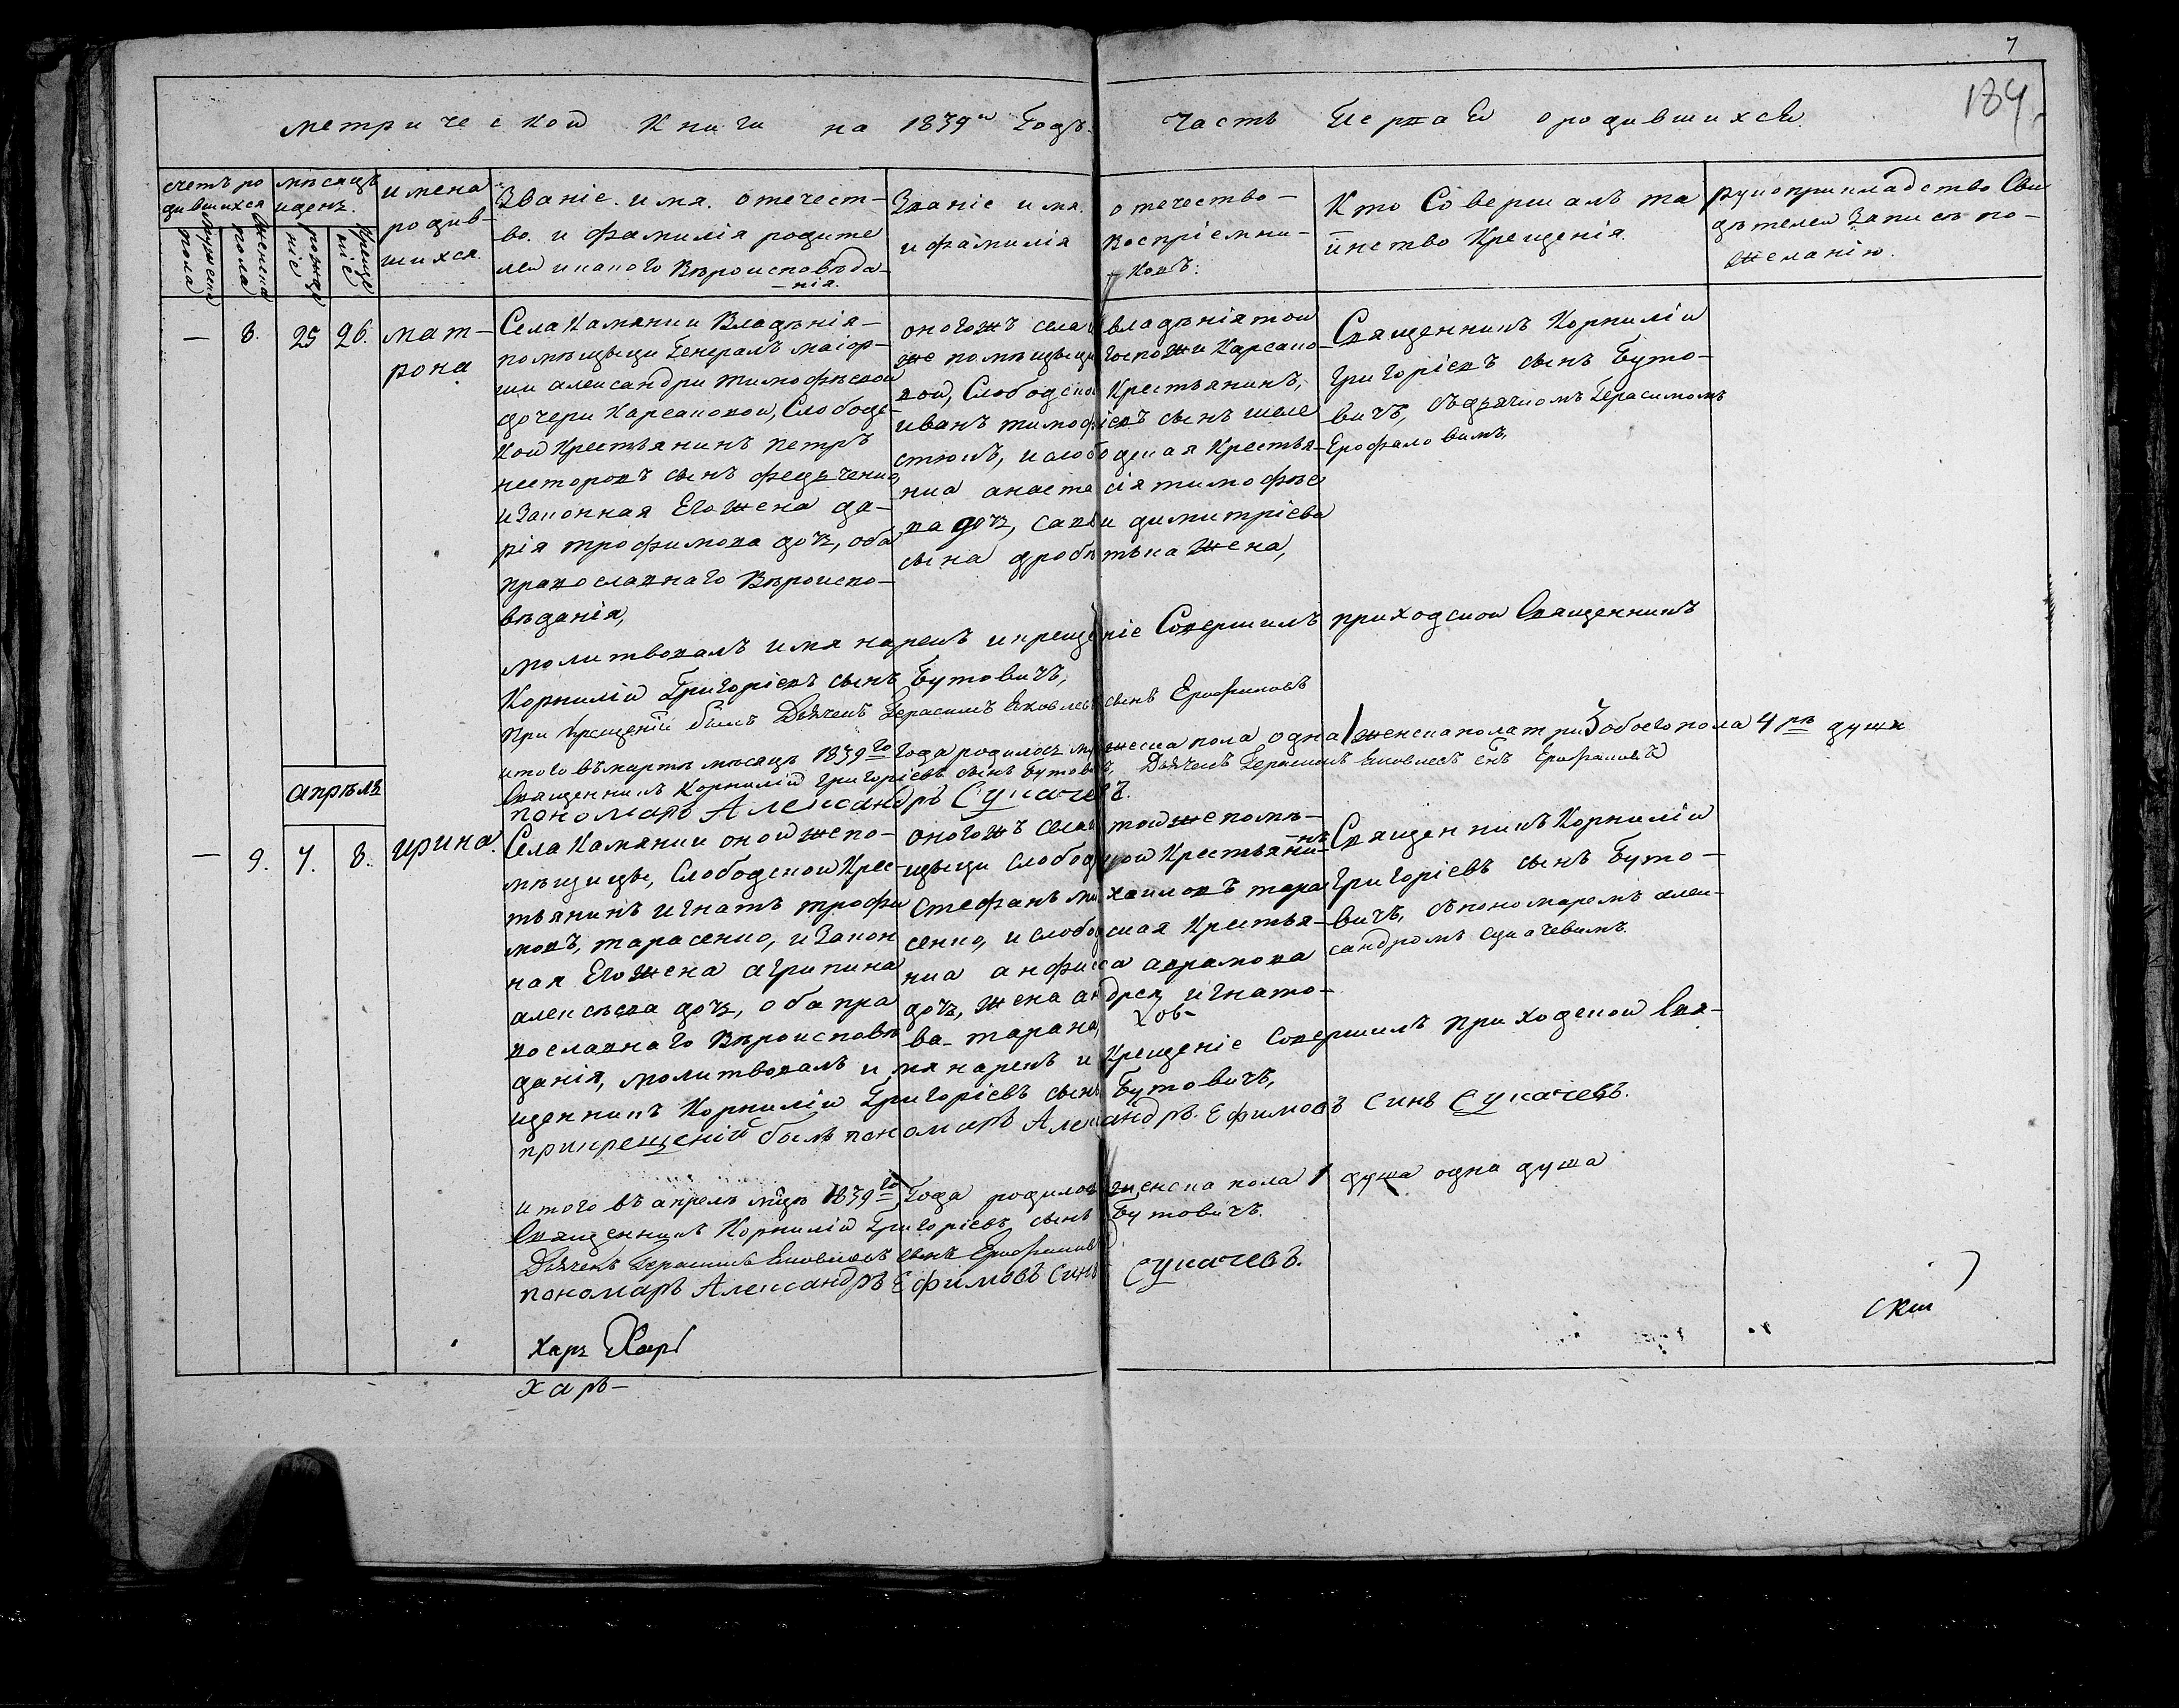 7
189.
Метрической Книги на 1839й Годъ. Часть Первая о родившихся.
счетъ ро
дившихся
мужеска
пола
женска
пола
мѣсяцъ
и день.
рожде
ніе
креще
ніе
имена
родив-
шихся.
Званіе. имя. отечест-
во. и фамилія родите
лей и какого Вѣроисповѣда-
-нія.
Званіе имя. отечество-
и фамилія воспріемни-
ковъ:
Кто Совершалъ та
инство Крещенія.
рукоприкладство Сви
дѣтелей Записъ по-
желанію.
— 8. 25 26. мат-
рона
Села Камянки Владѣнія-
помѣщыци Генералъ маіор-
ши александри тимофѣевой
дочери Карсаковой, Слободс-
кой Крестьянинъ петръ
несторовъ сынъ федьченко
и Законная Его жена да-
рія трофимова дочъ, оба
православнаго Вѣроиспо-
вѣданія,
оногожъ села владѣнія той
же помѣщыци Госпожи Карсако-
вой, Слободской Крестьянинъ,
иванъ тимофіевъ сынъ шеле
стюкъ, и слободская Крестья-
нка анастасія тимофѣе
ва дочъ, савы димитріева
сына дробитька жена,
Священникъ Корнилій
григоріевъ сынъ Буто-
вичъ, съ дьячкомъ Герасимомъ
Ерофаловимъ,
молитвовалъ имя нарекъ и крещеніе Совершилъ приходской Священникъ
Корнилій Григоріевъ сынъ Бутовичъ,
При крещеніи билъ Дьячекъ Герасимъ Яковлевъ сынъ Ерофаловъ
итого въ мартѣ мѣсяцѣ 1839го Года родилось мужеска пола одна 1 женска пола три 3 обоего пола 4ре души
Священникъ Корнилій григоріевъ сынъ Бутовичъ, Дьячекъ Герасимъ Яковлевъ снъ Ерофаловъ
пономаръ Александръ Сукачевъ.
апрѣль
— 9. 7. 8. ирина.
Села Камянки оной же по-
мѣщицы, Слободской Крес-
тьянинъ игнатъ трофи
мовъ, тарасенко, и Закон
ная Его жена агрипина
алексѣева дочъ, оба пра
вославнаго Вѣроисповѣ
данія,
оногожъ села той же помѣ-
щыци слободской Крестьянинъ
Стефанъ михаиловъ тара
сенко, и слободская Крестья-
нка анфиса аврамова
дочъ, жена андрея игнато-
ва тарана,
Священникъ Корнилій
Григоріевъ сынъ Буто-
вичъ, съ пономаремъ алек-
сандромъ сукачевимъ.
молитвовалъ имя нарекъ и Крещеніе Совершилъ приходской Свя-
щенникъ Корнилій Григоріевъ сынъ Бутовичъ,
при крещеніи былъ пономаръ Александръ Ефимовъ Синъ Сукачевъ.
итого въ апрелѣ мцѣ 1839го Года родилось женска пола 1 душа одна душа
Священникъ Корнилій Григоріевъ сынъ Бутовичъ.
Дьячекъ Герасимъ Яковлевъ сынъ Ерофаловъ
пономаръ Александръ Ефимовъ Синъ Сукачевъ.
ский
Харъ Хар
харъ-